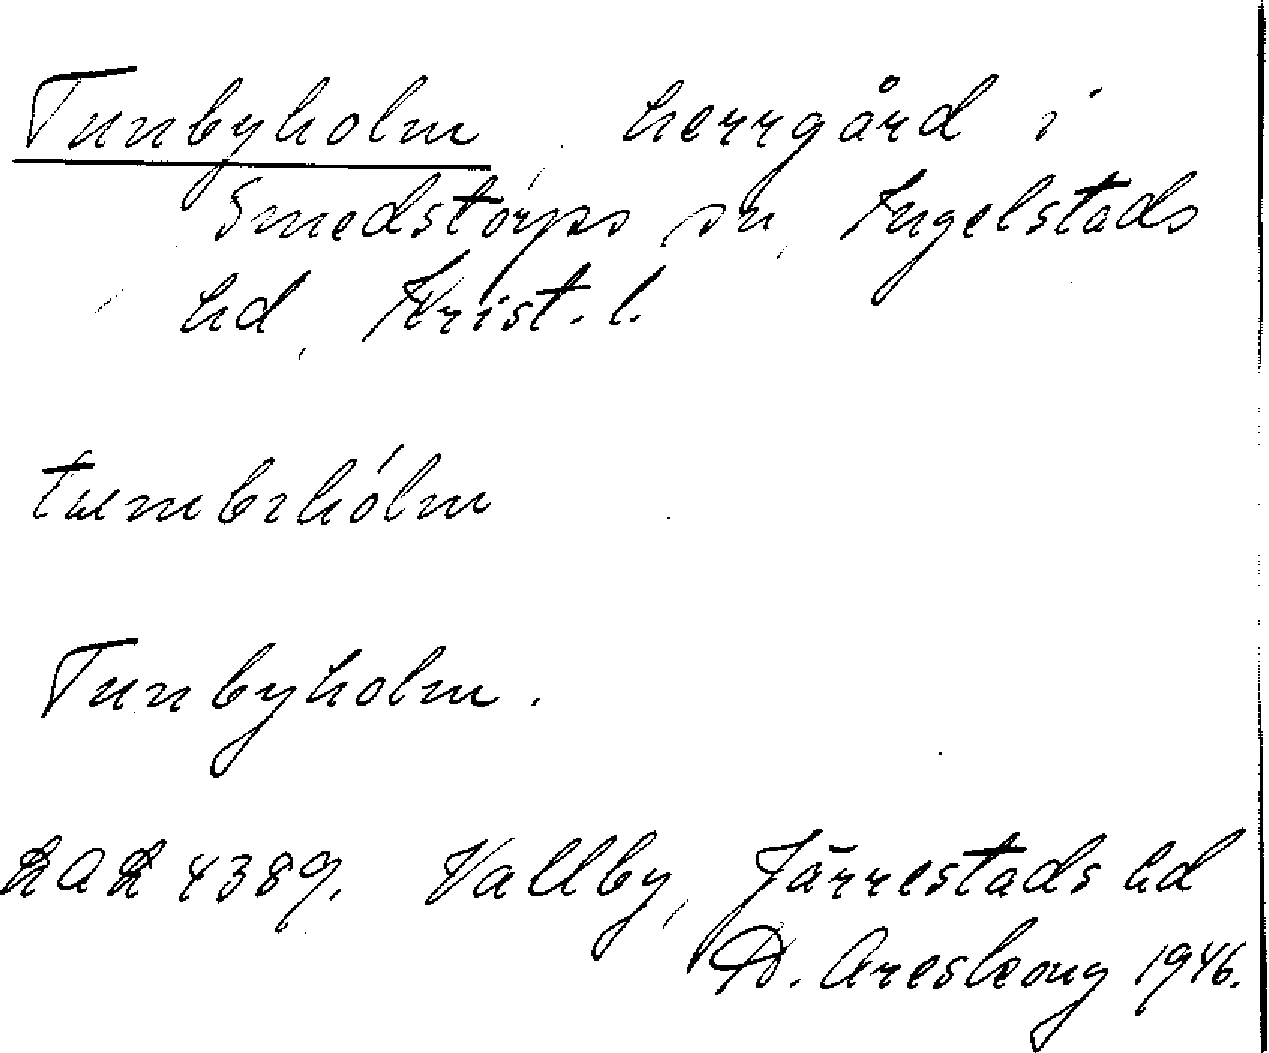 Tunbyholm, herrgård i
Smedstorps sn, Ingelstads
hd, Krist. l.
tumbrhólm
Tunbyholm.
4389. Vallby, Järrestads hd
1946.